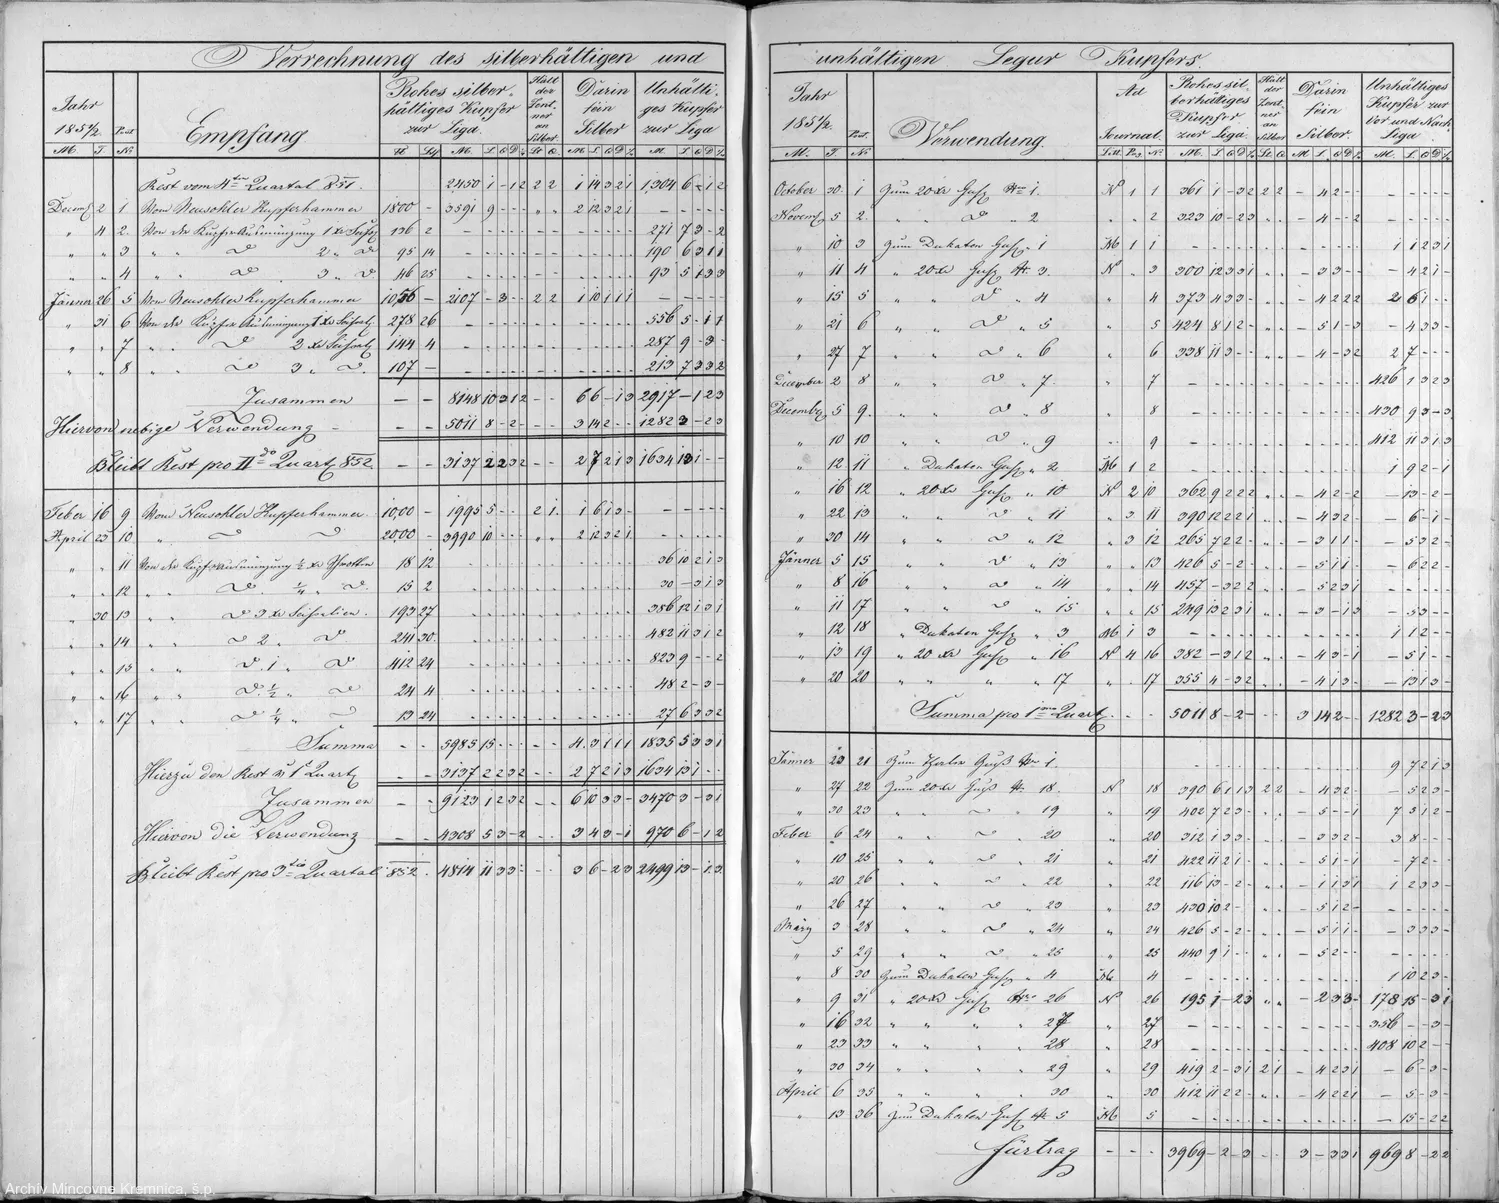 Verrechnung des silberhältigen und
Jahr 185½
Post
Empfang
Rohes silberhältiges Kupfer zur Liga.
Halt der Zentner an Silber.
Darin fein Silber
Unhältiges Kupfer zur Liga
M. T. Nr M. L Q D M. L Q D M. L Q D
Rest vom 4ten Quartal 851. 2450 1 - 1 2 2 2 1 14 3 2 1 1304 6 - 1 2
Decemb 2 1 Vom Neusohler Kupferhammer 1800 - 3591 9 - - „ „ 2 12 3 2 1 - - - - -
„ 4 2. Von der Kupferausmünzung 1 xr 136 2 271 7 3 - 2
„ „ 3 „ „ 2 „ 95 14 190 6 3 1 1
„ „ 4 „ „ 3 „ 46 25 93 5 1 3 3
Jänner 26 5 Vom Neusohler Kupferhammer 1056 - 2107 - 3 - - 2 2 1 10 1 1 1 - - - - -
„ 31 6 Von der Kupfer Ausmünzung 1 xr 278 26 556 5 - 1 1
„ „ 7 „ „ 2 xr 144 4 287 9 - 3 -
„ „ 8 „ „ 3 „ 107 - 213 7 3 3 2
Zusammen - - 8148 10 3 1 2 - - 6 6 - 1 3 2917 - 1 2 3
Hiervon nebige Verwendung - - - 5011 8 - 2 - - - 3 14 2 - - 1282 3 - 2 3
Bleibt Rest pro IIdo Quart. 852 - - 3137 2 2 3 2 - - 2 7 2 1 3 1634 13 1 - -
Feber 16 9 Vom Neusohler Kupferhammer 1000 - 1995 5 - - 2 1. 1 6 1 3 - - - - - -
April 23 10 „ 2000 - 3990 10 - - - „ „ 2 12 3 2 1 - - - - -
„ „ 11 Von der Kupferausmünzung ½ xr 18 12 36 10 2 1 3
„ „ 12 ¼ „ 15 2 30 - 3 1 3
„ 30 13 „ 3 xr 193 27 386 12 1 3 1
„ „ 14 „ 2 „ 241 30. 482 11 3 1 2
„ „ 15 „ „ 1 „ 412 24 823 9 - - 2
„ „ 16 „ „ ½ „ 24 4 48 2 - 3 -
„ „ 17 „ „ ¼ „ 13 24 27 6 3 3 2
Summa - - 5985 15 - - - - - 4. 3 1 1 1 1835 5 3 3 1
Hierzu den Rest v. 1ten Quart. - - 3137 2 2 3 2 - - 2 7 2 1 3 1634 13 1 - -
Zusammen - - 9123 1 2 3 2 - - 6 10 3 3 - 3470 3 - 3 1
Hiervon die Verwendung - - 4308 5 3 - 2 - - 3 4 3 - 1 970 6 - 1 2
Bleibt Rest pro 3tio Quartal 852. 4814 11 3 3 - - - 3 6 - 2 3 2499 13 - 1 3
unhältigen Legur Kupfers.
Jahr 185½.
Post.
Verwendung.
Ad Journal.
Rohes silberhältiges Kupfer zur Liga.
Halt der Zentner an Silber
Darin fein Silber.
Unhältiges Kupfer zur Vor und Nach Liga
M. T. Nr Litt. Pag Nr M. L Q D M. L Q D M. L Q D
October 30. 1 Zum 20 xr Guß Nro 1. N 1 1 361 1 - 3 2 2 2 - 4 2 - - - - - - -
Novemb 5 2 „ „ 2 „ „ 2 323 10 - 2 3 „ „ - 4 - - 2 - - - - -
„ 10 3 Zum Dukaten Guß „ 1 M 1 1 - 1 1 2 3 1
„ 11 4 „ 20 xr Guß Nr. 3. N „ 3 300 12 3 3 1 „ „ - 3 3 - - - 4 2 1 -
„ 15 5 „ „ 4 „ 4 373 4 3 3 - „ „ - 4 2 2 2 2 6 1 - -
„ 21 6 „ „ 5 „ 5 424 8 1 2 - „ „ - 5 1 - 3 - 4 3 3 -
„ 27 7 „ „ 6 „ 6 338 11 3 - - „ „ - 4 - 3 2 2 7 - - -
December 2 8 „ „ 7. „ 7 - 426 1 3 2 3
Decemb 5 9. „ „ 8 „ 8 - 430 9 3 - 3
„ 10 10 „ „ 9 „ 9 - 412 11 3 1 3
„ 12 11 „ Dukaten Guß „ 2 M 1 2 - 1 9 2 - 1
„ 16 12 „ 20 xr Guß „ 10 N 2 10 362 9 2 2 2 „ „ - 4 2 - 2 - 13 - 2 -
„ 22 13 „ „ 11 „ 3 11 390 12 2 2 1 „ „ - 4 3 2 - - 6 - 1 -
„ 30 14 „ „ 12 „ 3 12 265 7 2 2 - „ „ - 3 1 1 - - 5 3 2 -
Jänner 5 15 „ „ 13 „ „ 13 426 5 - 2 - „ „ - 5 1 1 - - 6 2 2 -
„ 8 16 „ „ 14 „ „ 14 457 - 3 2 2 „ „ - 5 2 3 1 - - - - -
„ 11 17 „ „ 15 „ „ 15 249 13 2 3 1 „ „ - 3 - 1 3 - 5 3 - -
„ 12 18 „ Dukaten Guß „ 3 M 1 3 - 1 1 2 - -
„ 13 19 „ 20 xr Guß „ 16 N 4 16 382 - 3 1 2 „ „ - 4 3 - 1 - 5 1 - -
„ 20 20 „ „ „ 17 „ „ 17 355 4 - 3 2 „ „ - 4 1 3 - - 13 1 3 -
Summa pro 1mo Quart. - - - 5011 8 - 2 - - - 3 14 2 - - 1282 3 - 2 3
Jänner 23 21 Zum Guß Nro 1. 9 7 2 1 3
„ 27 22 Zum 20 xr Guß Nr. 18. N 18 390 6 1 1 3 2 2 - 4 3 2 - - 5 2 3 -
„ 30 23 „ „ 19 „ 19 402 7 2 3 - „ „ - 5 - - 1 7 3 1 2 -
Feber 6 24 „ „ 20 „ 20 312 1 3 3 - „ „ - 3 3 2 - 3 8 - - -
„ 10 25 „ „ 21 „ 21 422 11 2 1 - „ „ - 5 1 - 1 - 7 2 - -
„ 20 26 „ „ 22 „ 22 116 13 - 2 - „ „ - 1 1 3 1 1 2 3 3 -
„ 26 27 „ „ 23 „ 23 430 10 2 - - „ „ - 5 1 2 - - - - - -
März 3 28 „ „ 24 „ 24 426 5 - 2 - „ „ - 5 1 1 - - 3 3 3 -
„ 5 29 „ „ 25 „ 25 440 9 1 - - „ „ - 5 2 - - - - - - -
„ 8 30 Zum Dukaten Guß „ 4 M 4 - 1 10 2 3 -
„ 9 31 „ 20 xr Guß Nro 26 N 26 195 1 - 2 3 „ „ - 2 3 3 - 178 15 - 3 1
„ 16 32 „ „ „ „ 27 „ 27 - 356 - - 3 -
„ 23 33 „ „ „ „ 28 „ 28 - 408 10 2 - -
„ 30 34 „ „ „ „ 29 „ 29 419 2 - 3 1 2 1 - 4 2 3 1 - 6 - 3 -
April 6 35 „ „ „ „ 30 „ 30 412 11 2 2 - „ „ - 4 2 2 1 - 5 - 3 -
„ 13 36 Zum Dukaten Guß Nr. 5 M 5 - - 15 - 2 2
Fürtrag - - - 3969 - 2 - 3 - - 3 - 3 3 1 969 8 - 2 2
Archív Mincovne Kremnica, š.p.